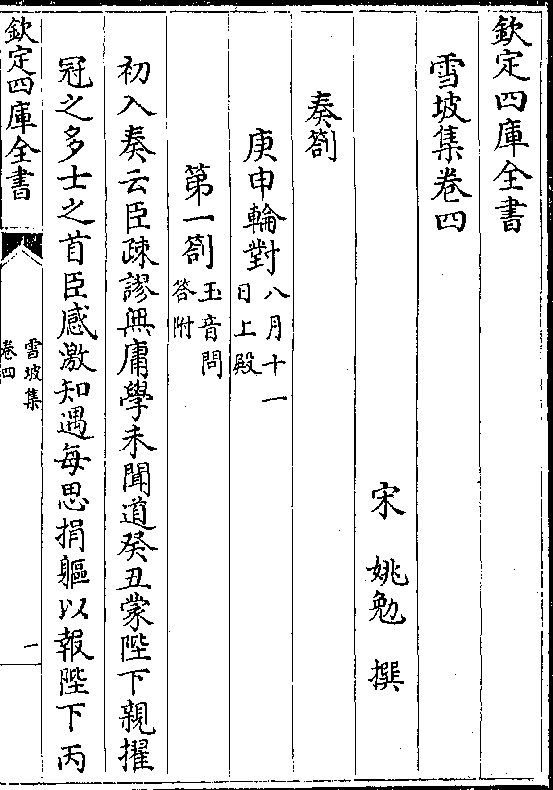 欽定四庫全書
雪坡集卷四
宋　姚勉　撰
奏劄
庚申輪對八月十一日上殿
第一劄玉音問答附
初入奏云臣疎謬無庸學未聞道癸丑蒙陛下親擢
冠之多士之首臣感激知遇每思捐軀以報陛下丙
欽定四庫全書
雪坡集
卷四
一